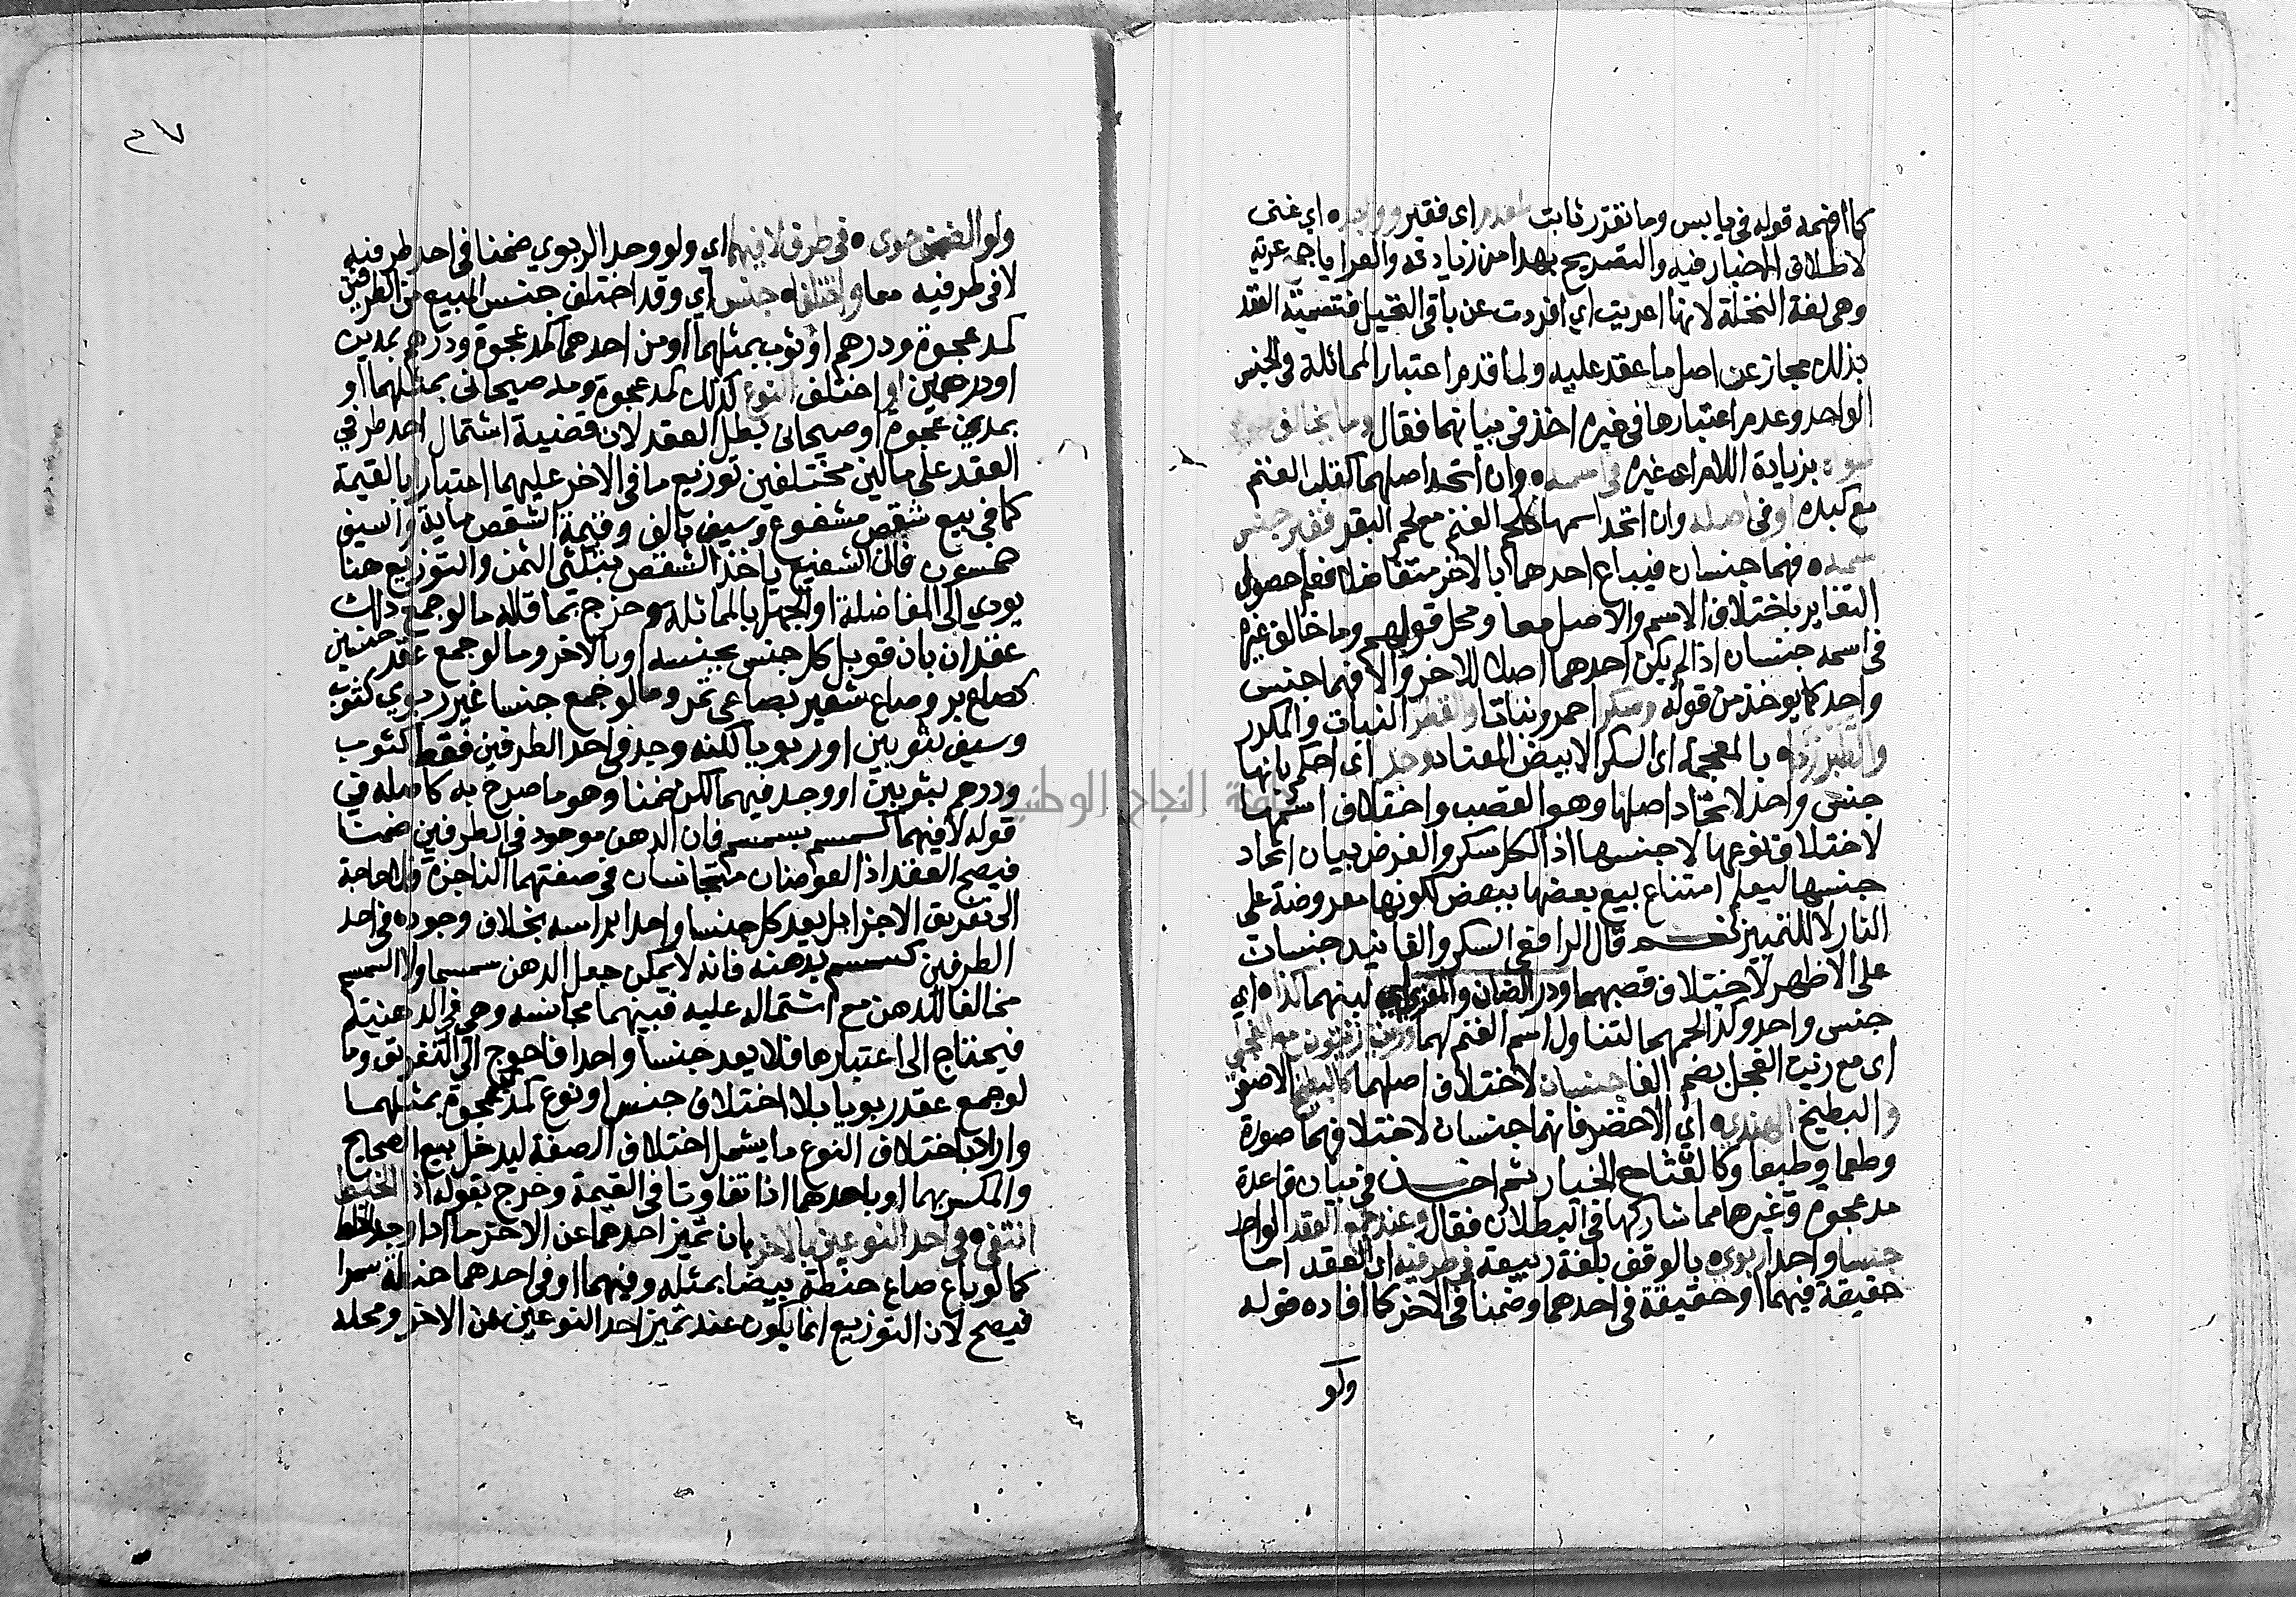 كما افهمه قوله في يابس وما تقرر ثابت لمعدم اى فقير وواجده اي غنى
لاطلاق الاخبار فيه والتصريح بهذا من زيادته والعرايا جمع عرية
وهى لغة النخلة لانها اعريت اي افردت عن باقى النخيل فتسمية العقد
بذلك مجاز عن اصل ما عقد عليه ولما قدم اعتبار المماثلة في الجنس
الواحد وعدم اعتبارها فى غيره اخذ فى بيانهما فقال وما يخالف
لسواه بزيادة اللام اى غيره فى اسمه وان اتحد اصلهما كقلب الغنم
مع كبده او فى اصله وان اتحد اسمهما كلحم الغنم مع لحم البقر فغير جنس
سميه فهما جنسان فيباع احدهما بالاخر متفاضلا فعلم حصول
التغاير باختلاف الاسم والاصل معا ومحل قولهم وما خالف غيره
فى اسمه جنسان اذا لم يكن احدهما اصلا للاخر والا فهما جنس
واحد كما يوخذ من قوله وسكرا احمر ونباتا والقطر النبات والمكرر
والطبرزد بالمعجمة اى السكر الابيض المعتاد وحد اى احكم بانها
جنس واحد لاتحاد اصلها وهو القصب واختلاف اسمها
لاختلاف نوعها لا جنسها اذ الكل سكر والغرض بيان اتحاد
جنسها ليعلم امتناع بيع بعضها ببعض لكونها معروضة على
النار لا للتمييز نعم قال الرافعى السكر والفانيد جنسان
على الاظهر لاختلاف قصبهما ودر الضان والمعز اي لبنهما كذا اي
جنس واحد وكذا لحمهما لتناول اسم الغنم لهما وزيت زيتون مع الفجل
اى مع زيت الفجل بضم الفا جنسان لاختلاف اصلهما كالبطيخ الاصفر
والبطيخ الهندي اي الاخضر فانهما جنسان لاختلافهما صورة
وطعما وطبعا وكالقثا مع الخيار ثم اخذ فى بيان قاعدة
مد عجوة وغيرها مما شاركها فى البطلان فقال وعند جمع العقد الواحد
جنسا واحدا ربوى بالوقف بلغة ربيعة فى طرفيه اى العقد اما
حقيقة فيهما او حقيقة فى احدهما وضمنا فى الاخر كما افاده قوله
ولو
ولو الضمن حوى فى طرف لا فيهما اي ولو وجد الربوي ضمنا فى احد طرفيه
لا فى طرفيه معا واختلفا جنس اي وقد اختلف جنس المبيع من الطرفين
كمد عجوة ودرهم او ثوب بمثلهما او من احدهما كمد عجوة ودرهم بمدين
او درهمين او اختلف النوع كذلك كمد عجوة ومد صيحانى بمثلهما او
بمدين عجوة او صيحانى بطل العقد لان قضية اشتمال احد طرفي
العقد على مالين مختلفين توزيع ما فى الاخر عليهما اعتبارا بالقيمة
كما في بيع شقص مشفوع وسيف بالف وقيمة الشقص ماية والسيف
خمسون فان الشفيع ياخذ الشقص بثلثى الثمن والتوزيع هنا
يودي الى المفاضلة او الجهل بالمماثلة وخرج بما قاله ما لو جمع ذلك
عقدان بان قوبل كل جنس بجنسه او بالاخر وما لو جمع عقد جنسين
كصاع بر وصاع شعير بصاعى تمر وما لو جمع جنسا غير ربوي كثوب
وسيف بثوبين او ربويا لكنه وجد فى احد الطرفين فقط كثوب
ودرهم بثوبين او وجد فيهما لكن ضمنا وهو ما صرح به كاصله في
قوله لا فيهما كسمسم بسمسم فان الدهن موجود فى الطرفين ضمنا
فيصح العقد اذ العوضان متجانسان فى صفتهما الناجزة فلا حاجة
الى تفريق الاجزا بل يعد كل جنسا واحدا براسه بخلاف وجوده فى احد
الطرفين كسمسم بدهنه فانه لا يمكن جعل الدهن سمسما ولا السمسم
مخالفا للدهن مع اشتماله عليه فبينهما مجانسة وهى فى الدهنية
فيحتاج الى اعتبارها فلا يعد جنسا واحدا فاحوج الى التفريق وما
لو جمع عقد ربويا بلا اختلاف جنس او نوع كمد عجوة بمثلهما
واراد باختلاف النوع ما يشمل اختلاف الصفة ليدخل بيع الصحيح
والمكسر بهما او باحدهما اذا تفاوتا فى القيمة وخرج بقوله اذ الخليط
انتفى فى احد النوعين بالاخر بان تميز احدهما عن الاخر ما اذا وجد الخلط
كما لو باع صاع حنطة بيضا بمثله وفيهما او فى احدهما حنطة سمرا
فيصح لان التوزيع انما يكون عند تميز احد النوعين عن الاخر ومحله